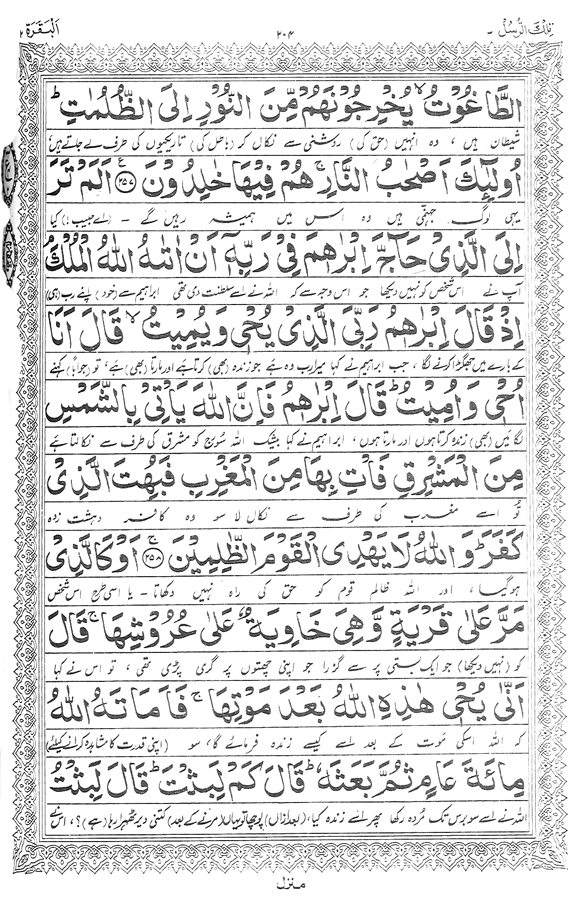 تلك الرسل ٣ ٢٠٤ البقرة ٢
الطَّاغُوْتُ ۙ يُخْرِجُوْنَهُمْ مِّنَ النُّوْرِ اِلَى الظُّلُمٰتِ ؕ
شیطان ہیں ، وہ انہیں (حق کی) روشنی سے نکال کر (باطل کی) تاریکیوں کی طرف لے جاتے ہیں
اُولٰٓئِكَ اَصْحٰبُ النَّارِ ۚ هُمْ فِيْهَا خٰلِدُوْنَ ﴿۲۵۷﴾ اَلَمْ تَرَ
یہی لوگ جہنمی ہیں وہ اس میں ہمیشہ رہیں گے - (اے حبیب!) کیا
اِلَى الَّذِيْ حَآجَّ اِبْرٰهٖمَ فِيْ رَبِّهٖۤ اَنْ اٰتٰىهُ اللّٰهُ الْمُلْكَ ۘ
آپ نے اس شخص کو نہیں دیکھا جو اس وجہ سے کہ اللہ نے اسے سلطنت دی تھی ابراہیم سے (خود) اپنے رب (ہی)
اِذْ قَالَ اِبْرٰهٖمُ رَبِّيَ الَّذِيْ يُحْيٖ وَ يُمِيْتُ ۙ قَالَ اَنَا
کے بارے میں جھگڑا کرنے لگا ، جب ابراہیم نے کہا میرا رب وہ ہے جو زندہ (بھی) کرتا ہے اور مارتا (بھی) ہے ، تو (جواباً) کہنے
اُحْيٖ وَ اُمِيْتُ ؕ قَالَ اِبْرٰهٖمُ فَاِنَّ اللّٰهَ يَاْتِيْ بِالشَّمْسِ
لگا میں (بھی) زندہ کرتا ہوں اور مارتا ہوں ، ابراہیم نے کہا بیشک اللہ سورج کو مشرق کی طرف سے نکالتا ہے
مِنَ الْمَشْرِقِ فَاْتِ بِهَا مِنَ الْمَغْرِبِ فَبُهِتَ الَّذِيْ
تو اسے مغرب کی طرف سے نکال لا سو وہ کافر دہشت زدہ
كَفَرَ ؕ وَ اللّٰهُ لَا يَهْدِي الْقَوْمَ الظّٰلِمِيْنَ ﴿۲۵۸﴾ اَوْ كَالَّذِيْ
ہو گیا ، اور اللہ ظالم قوم کو حق کی راہ نہیں دکھاتا - یا اسی طرح اس شخص
مَرَّ عَلٰى قَرْيَةٍ وَّ هِيَ خَاوِيَةٌ عَلٰى عُرُوْشِهَا ۚ قَالَ
کو (نہیں دیکھا) جو ایک بستی پر سے گزرا جو اپنی چھتوں پر گری پڑی تھی ، تو اس نے کہا
اَنّٰى يُحْيٖ هٰذِهِ اللّٰهُ بَعْدَ مَوْتِهَا ۚ فَاَمَاتَهُ اللّٰهُ
کہ اللہ اسکی موت کے بعد اسے کیسے زندہ فرمائے گا، سو (اپنی قدرت کا مشاہدہ کرانے کیلئے)
مِائَةَ عَامٍ ثُمَّ بَعَثَهٗ ؕ قَالَ كَمْ لَبِثْتَ ؕ قَالَ لَبِثْتُ
اللہ نے اسے سو برس تک مُردہ رکھا پھر اسے زندہ کیا، (بعد ازاں) پوچھا تو یہاں (مرنے کے بعد) کتنی دیر ٹھہرا رہا (ہے) ؟، اس نے
منزل